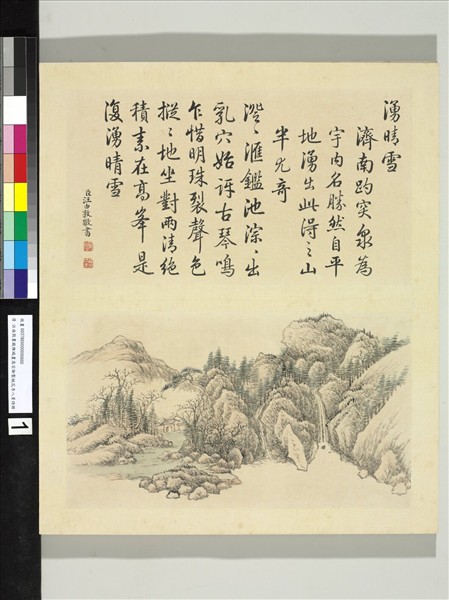 湧晴雪
濟南趵突泉為
宇内名勝然自平
地湧出此得之山
半尤奇
澄〻滙鑑池淙〻出
乳穴始訝古琴鳴
乍惜明珠裂聲色
摐〻地坐對兩清絶
積素在高峯是
復湧晴雪
臣汪由敦敬書
1